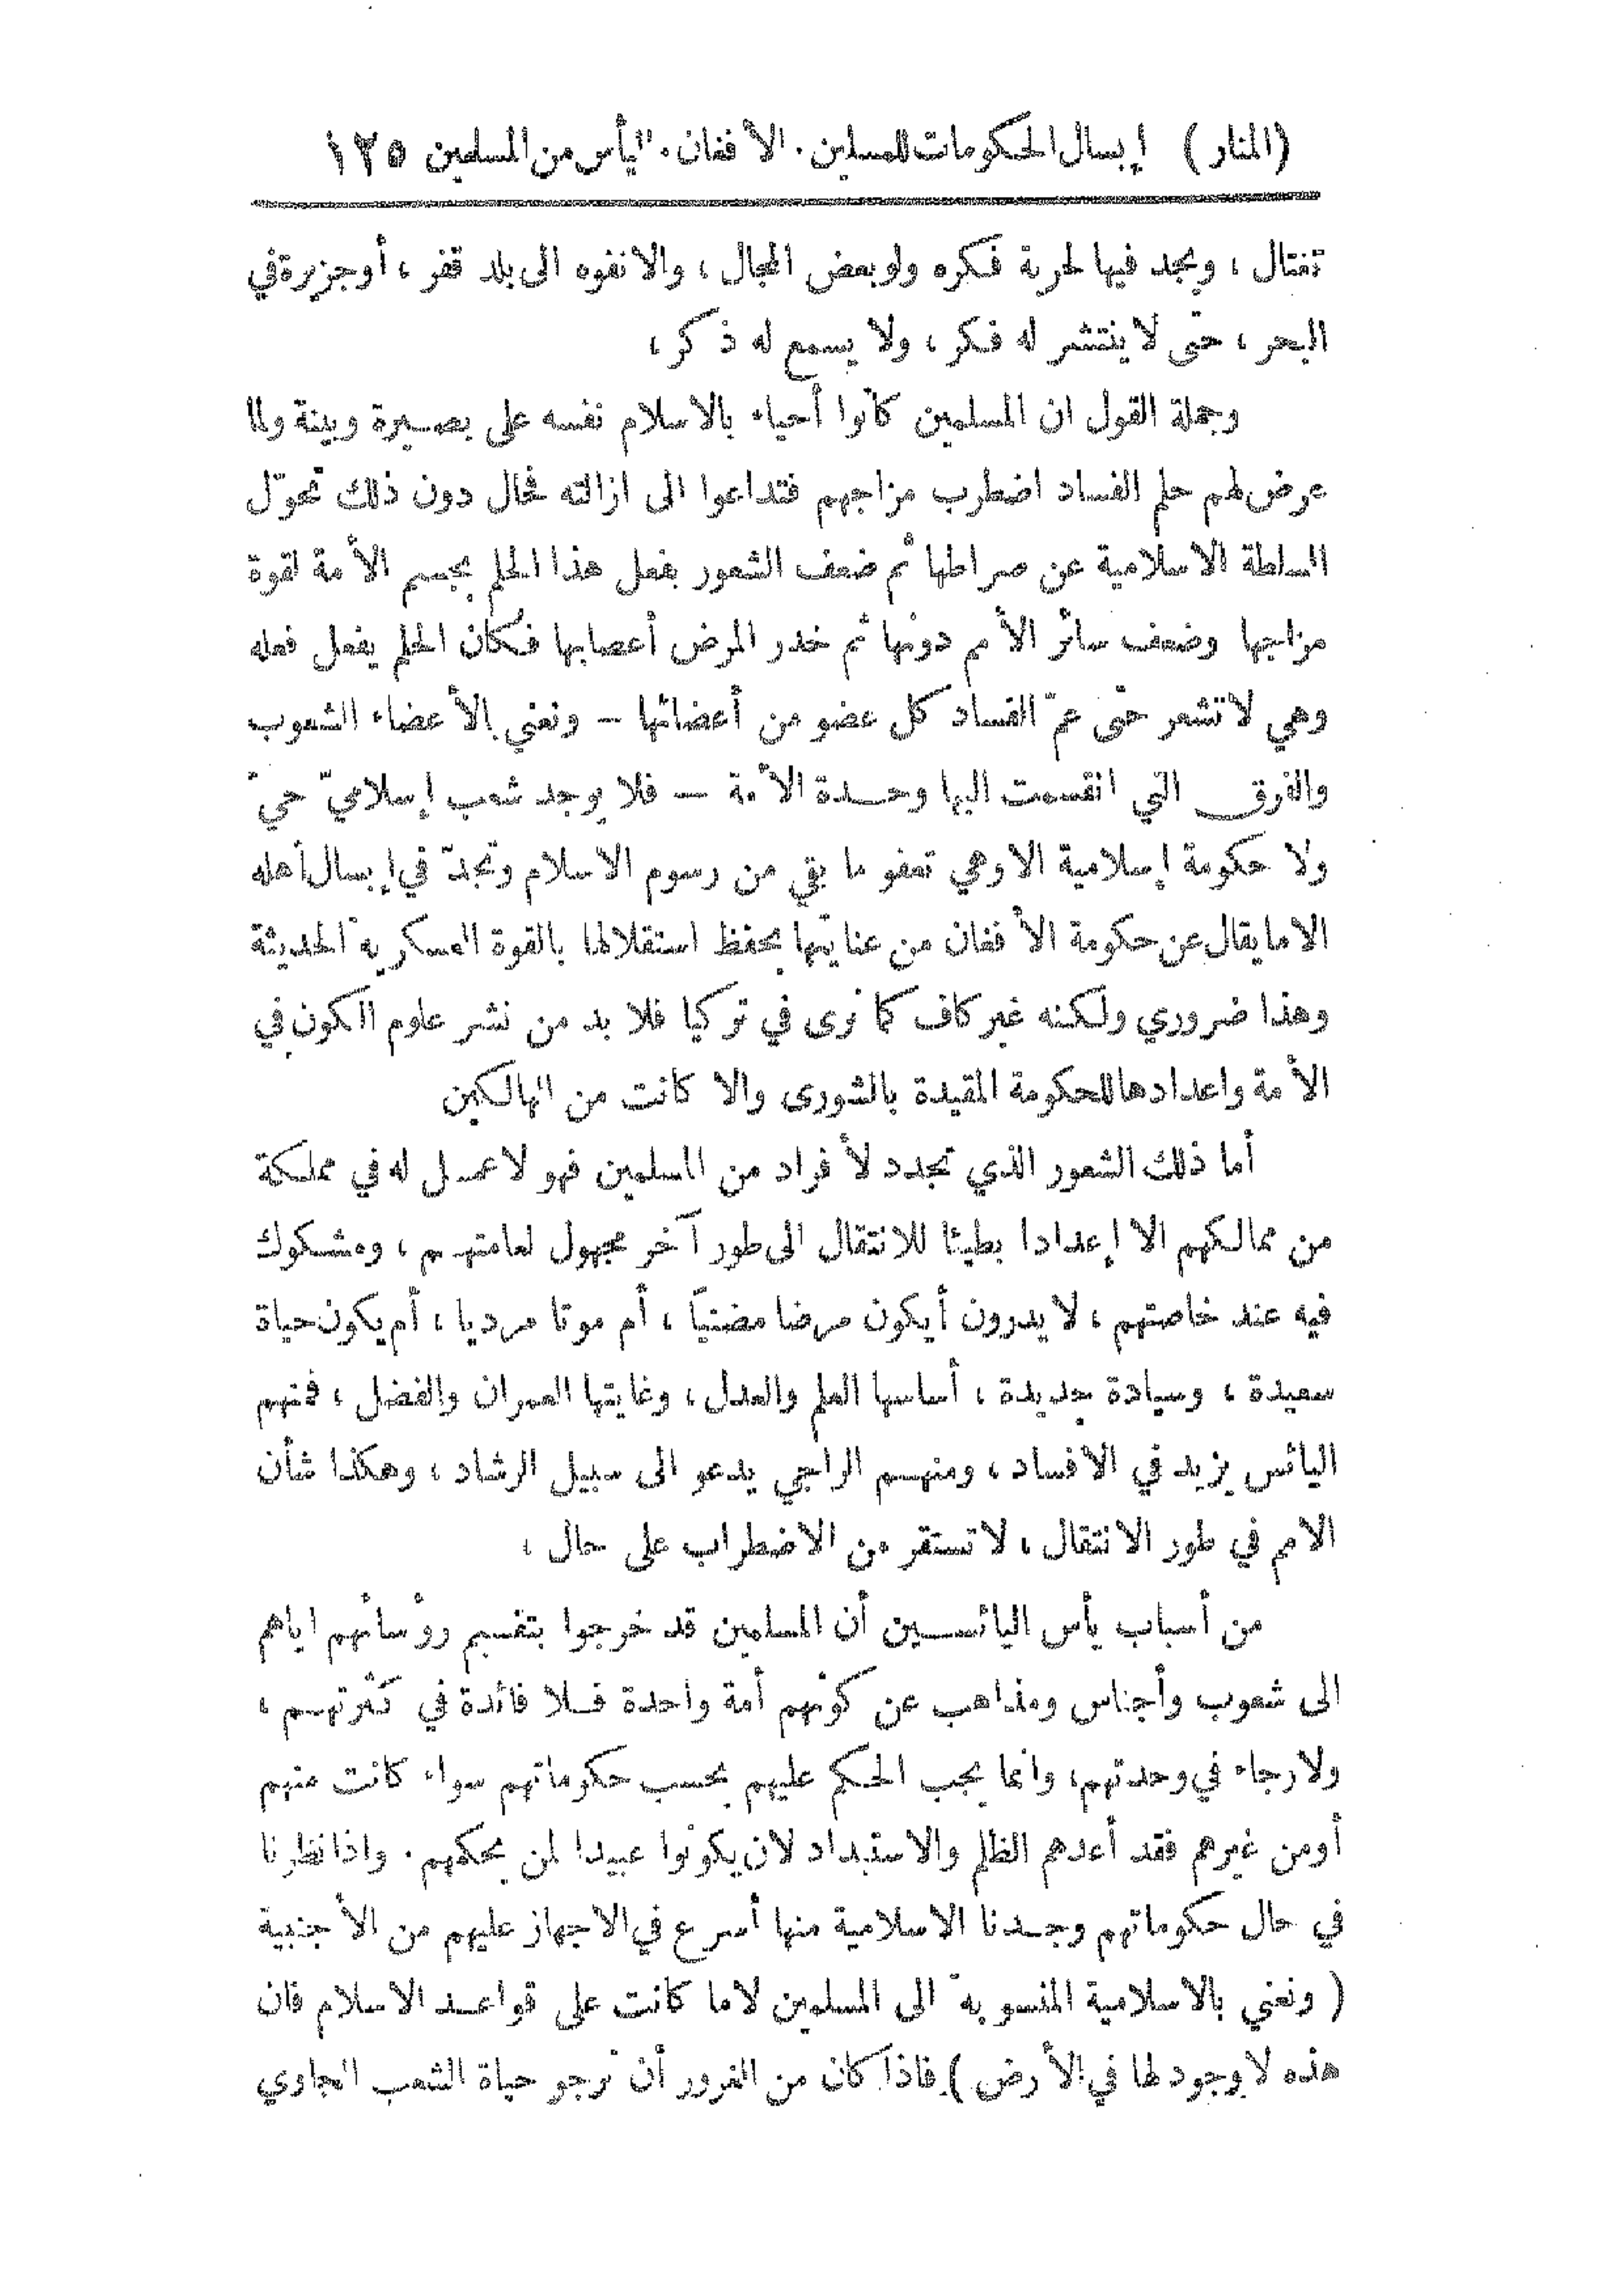 (المنار) إبسال الحكومات للمسلمين. الأفغان. اليأس من المسلمين ١٢٥
تغتال ، ويجد فيها لحرية فكره ولو بعض المجال ، والا نفوه الى بلد قفر ، أو جزيرة في
البحر ، حتى لا ينتشر له فكر ، ولا يسمع له ذكر ،
وجملة القول ان المسلمين كانوا أحياء بالاسلام نفسه على بصيرة وبينة ولما
عرض لهم حلم الفساد اضطرب مزاجهم فتداعوا الى ازالته فحال دون ذلك تحوّل
السلطة الاسلامية عن صراطها ثم ضعف الشعور بفعل هذا الحلم بجسم الأمة لقوة
مزاجها وضعف سائر الأمم دونها ثم خدر المرض أعصابها فكان الحلم يفعل فعله
وهي لا تشعر حتى عمّ الفساد كل عضو من أعضائها – ونعني بالأعضاء الشعوب
والفرق التي انقسمت اليها وحدة الأمة – فلا يوجد شعب إسلاميّ حيّ
ولا حكومة إسلامية الا وهي تعفو ما بقي من رسوم الاسلام وتجدّ في إبسال أهله
الا ما يقال عن حكومة الأفغان من عنايتها بحفظ استقلالها بالقوة العسكرية الحديثة
وهذا ضروري ولكنه غير كاف كما نرى في تركيا فلا بد من نشر علوم الكون في
الأمة واعدادها للحكومة المقيدة بالشورى والا كانت من الهالكين
أما ذلك الشعور الذي تجدد لأفراد من المسلمين فهو لا عمل له في مملكة
من ممالكهم الا إعدادا بطيئا للانتقال الى طور آخر مجهول لعامتهم ، ومشكوك
فيه عند خاصتهم ، لا يدرون أيكون مرضا مضنيًا ، أم موتا مرديا ، أم يكون حياة
سعيدة ، وسيادة جديدة ، أساسها العلم والعدل ، وغايتها العمران والفضل ، فمنهم
اليائس يزيد في الافساد ، ومنهم الراجي يدعو الى سبيل الرشاد ، وهكذا شأن
الامم في طور الانتقال ، لا تستقر من الاضطراب على حال ،
من أسباب يأس اليائسين أن المسلمين قد خرجوا بتقسيم رؤسائهم اياهم
الى شعوب وأجناس ومذاهب عن كونهم أمة واحدة فلا فائدة في كثرتهم ،
ولا رجاء في وحدتهم ، وانما يجب الحكم عليهم بحسب حكوماتهم سواء كانت منهم
أو من غيرهم فقد أعدهم الظلم والاستبداد لان يكونوا عبيدا لمن يحكمهم . واذا نظرنا
في حال حكوماتهم وجدنا الاسلامية منها أسرع في الاجهاز عليهم من الأجنبية
( ونعني بالاسلامية المنسوبة الى المسلمين لا ما كانت على قواعد الاسلام فان
هذه لا وجود لها في الأرض ) فاذا كان من الغرور أن نرجو حياة الشعب الجاوي